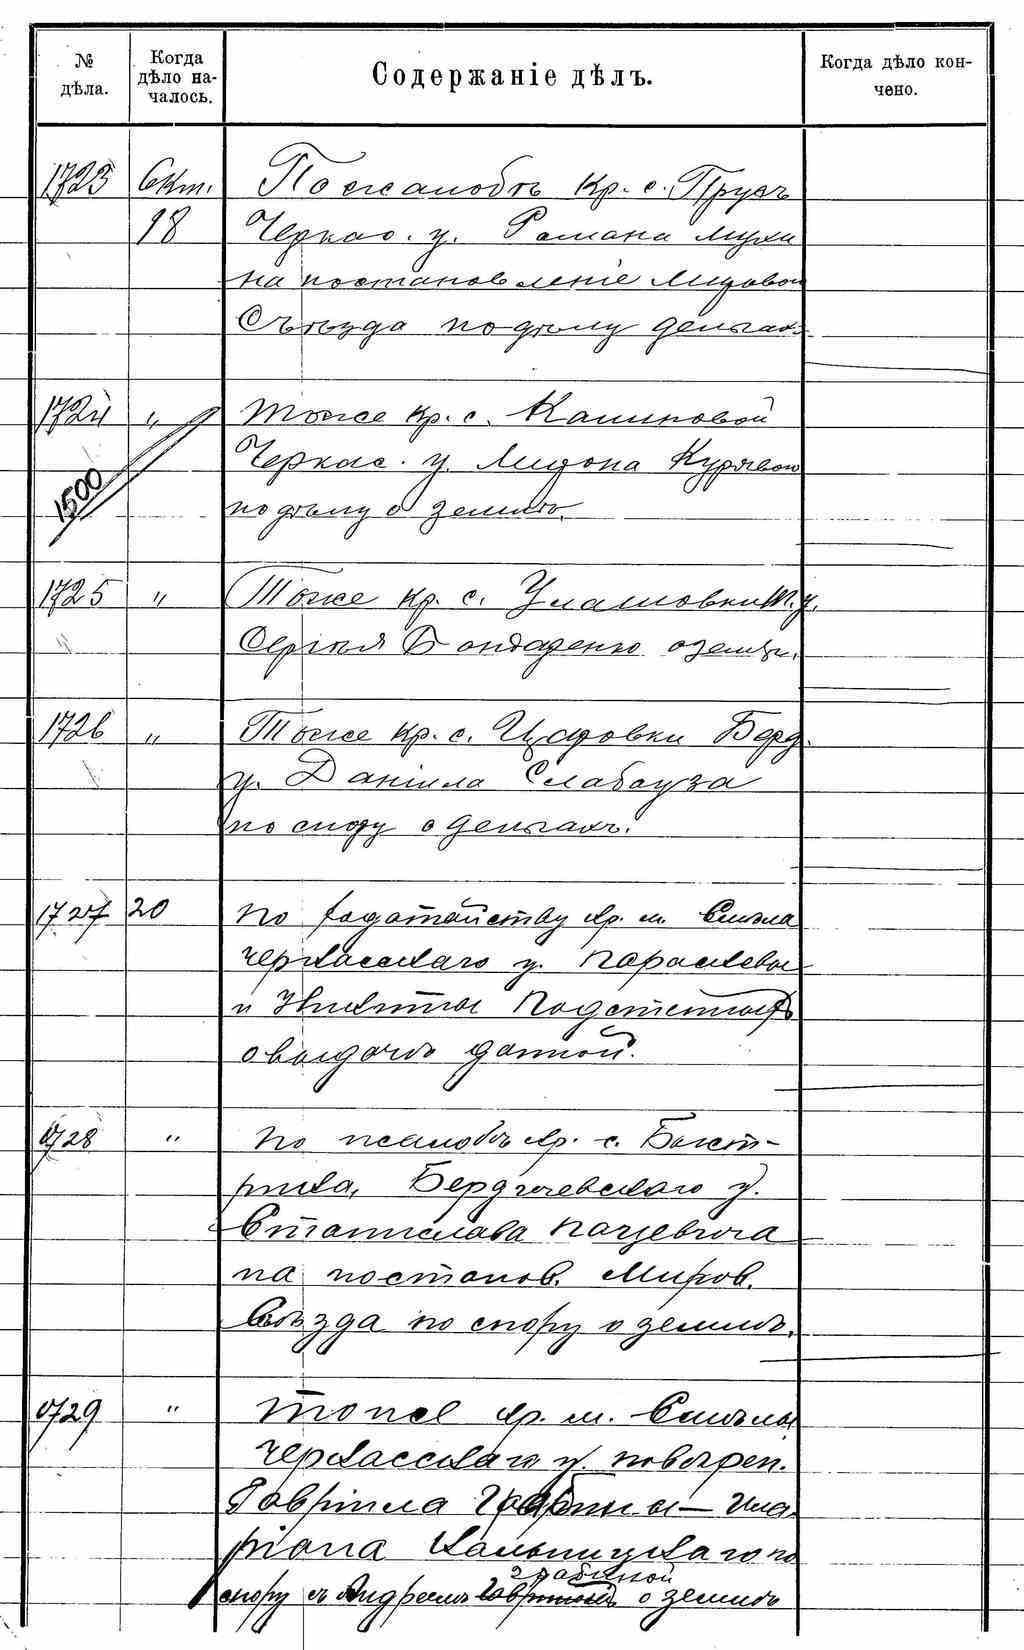 № дѣла.
Когда дѣло началось.
Содержаніе дѣлъ.
Когда дѣло кончено.
1723 Окт. По жалобѣ кр. с. Прусъ
18 Черкас. у. Романа Мухи
на постановленіе Мирового
Съѣзда по дѣлу деньгахъ
1724 „ Тоже кр. с. Калиновой
Черкас. у.
1500
по дѣлу о землѣ.
1725 „ Тоже кр. с. Улашовки Т. у.
Сергѣя Бондаренко о землѣ.
1726 „ Тоже кр. с. Берд.
у. Даніила Слабоуза
по спору о деньгахъ.
1727 20 По ходатайству кр. м. Смѣла
Черкасскаго у. Параскевы
и Никиты
о выдачѣ данной.
1728 „ По жалобѣ кр. с. Быст-
рика, Бердичевскаго у.
Станислава Пацевича
на постанов. Миров.
Съѣзда по спору о землѣ.
1729 „ Тоже кр. м. Смѣлы
Черкасскаго у. повѣрен.
Гавріила Грабины — Ила-
ріона Кальницкаго по
грабиной
спору съ Андреемъ о землѣ